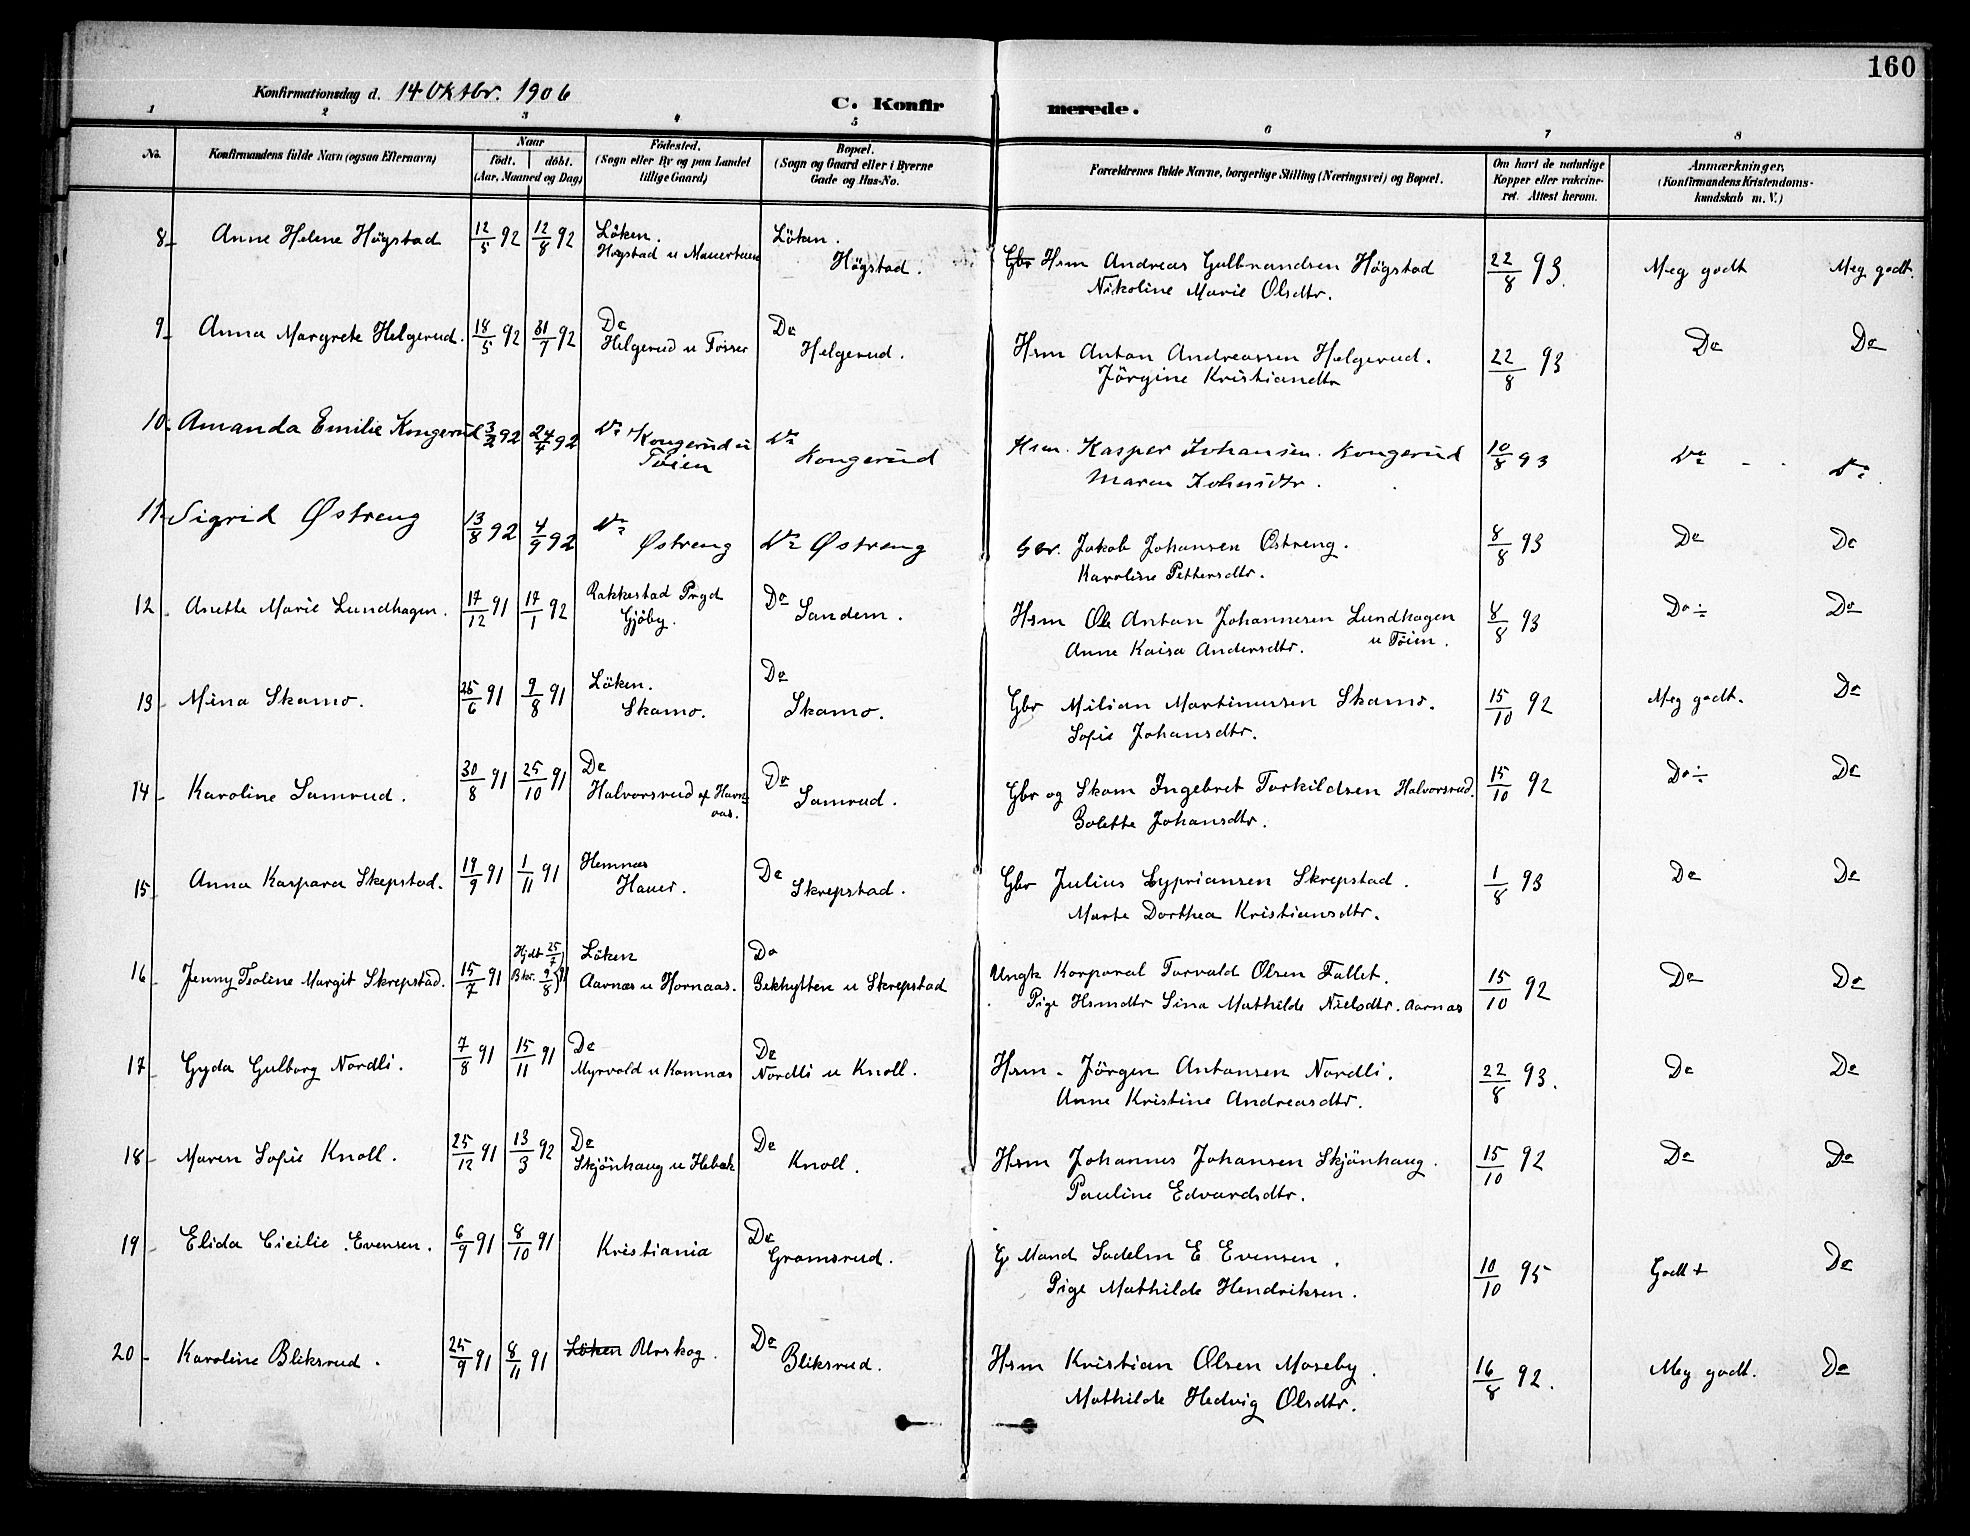 160
Konfirmationsdag d. 14 Oktbr. 1906
C. Konfirmerede.
1 2 3 4 5 6 7 8
No. Konfirmandens fulde Navn (ogsaa Efternavn) Naar födt. döbt. (Aar, Maaned og Dag) Födested. (Sogn eller By og paa Landet tillige Gaard) Bopæl. (Sogn og Gaard eller i Byerne Gade og Hus-No. Forældrenes fulde Navne, borgerlige Stilling (Næringsvei) og Bopæl. Om havt de naturlige Kopper eller vakcineret. Attest herom. Anmærkninger, (Konfirmandens Kristendomskundskab m. V.)
8 Anne Helene Högstad 12/5 92 12/8 92 Löken. Högstad u Löken. Högstad. Gbr Hsm Andreas Gulbrandsen Högstad 22/8 93. Meg godt Meg godt.
Nikoline Marie Olsdtr.
9 Anna Margrete Helgerud. 18/5 92 31/7 92 Do Helgerud u Tosser Do Helgerud. Hsm Anton Andreassen Helgerud. 22/8 93 Do Do
Jörgine Kristiandtr
10 Amanda Emilie Kongerud 3/2 92 24/4 92 Do Kongerud u Töien Do Kongerud Hsm. Kasper Johansen. Kongerud 10/8 93 Do Do
Maren Johnsdtr.
11 Sigrid Østreng 13/8 92 4/9 92 Do Østreng Do Østreng Gbr. Jakob Johansen Östreng. 8/8 93 Do Do
Karoline Pettersdtr.
12 Anette Marie Lundhagen. 17/12 91 17/1 92 Rakkestad Prgd Gjöby. Do Sandem. Hsm Ole Anton Johannesen Lundhagen u Töien. 8/8 93 Do ÷ Do
Anne Kaisa Andersdtr.
13 Mina Skamo. 25/6 91 9/8 91 Löken. Skamo. Do Skamo. Gbr Milian Martinussen Skamo. 15/10 92 Meg godt. Do
Sofie Johansdtr.
14 Karoline Samrud. 30/8 91 25/10 91 Do Halvorsrud af Havnaas. Do Samrud. Gbr og Skom Ingebret Torkildsen Halvorsrud. 15/10 92 Do ÷ Do
Bolette Johansdtr.
15 Anna Kaspara Skepstad. 19/9 91 1/11 91 Hemnæs Hauer. Do Skrepstad. Gbr Julius Cypriansen Skrepstad. 1/8 93 Do Do
Marte Dorthea Kristiansdtr.
16 Jenny Isoline Margit Skrepstad. 15/7 91 Hjdt 25/7 Bkr. 9/8 91 Löken Aarnæs u Hornaas. Do Bekhytten u Skrepstad Ungk Korporal Torvald Olsen Fallet. 15/10 92 Do Do
Pige Hsmdtr Lina Mathilde Nielsdtr. Aarnæs
17 Gyda Gulborg Nordli. 7/8 91 15/11 91 Do Myrvold u Komnæs Do Nordli u Knoll. Hsm. Jörgen Antonsen Nordli. 22/8 93. Do Do
Anne Kristine Andreasdtr.
18 Maren Sofie Knoll. 25/12 91 13/3 92 Do Skjönhaug u Hebæk Do Knoll. Hsm Johannes Johansen Skjönhaug. 15/10 92 Do Do
Pauline Edvardsdtr.
19 Elida Cicilie Evensen. 6/9 91 8/10 91 Kristiania Do Gromsrud. G Mand Sadelm E Evensen. 10/10 95 Godt + Do
Pige Mathilde Hendriksen.
20 Karoline Bliksrud. 25/9 91 8/11 91 Löken Urskog. Do Bliksrud. Hsm Kristian Olsen Moseby. 16/8 92. Meg godt. Do
Mathilde Hedvig Olsdtr.